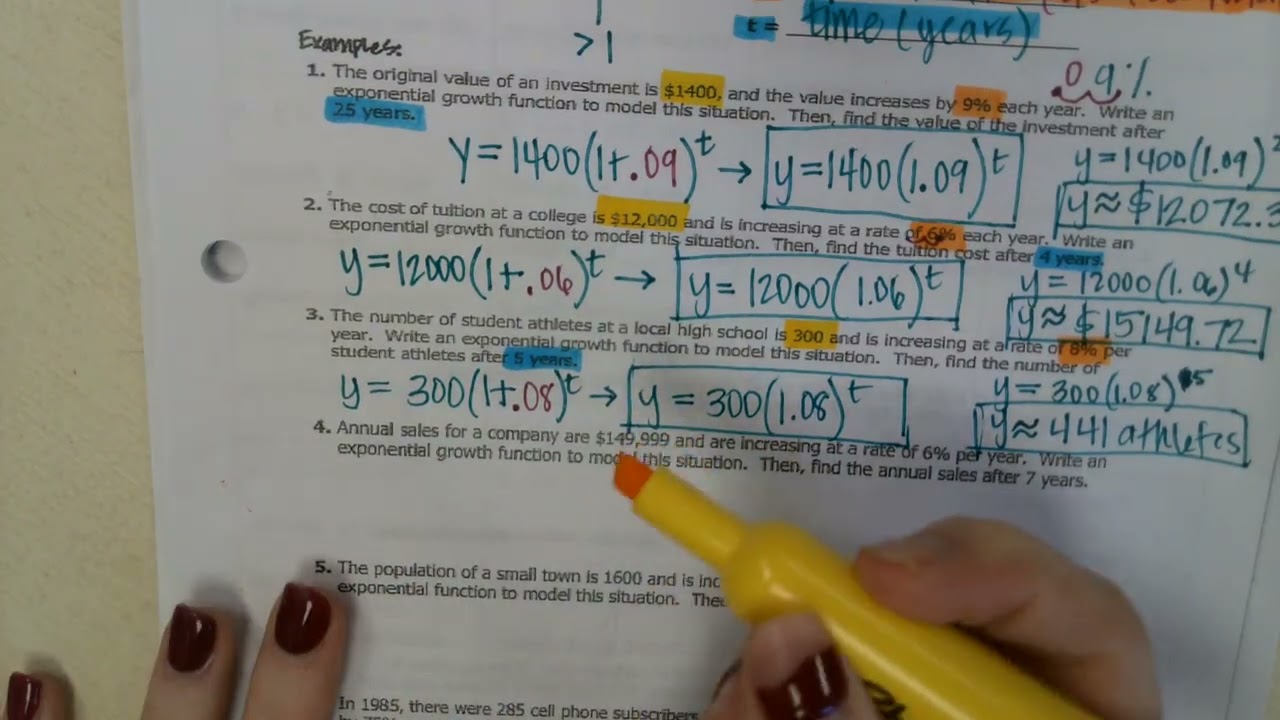 t = time (years)
Examples:
>1
09%
1. The original value of an investment is $1400, and the value increases by 9% each year. Write an
exponential growth function to model this situation. Then, find the value of the investment after
25 years.
y=1400(1+.09)^t → y=1400(1.09)^t
y=1400(1.09)
y≈$12072.3
2. The cost of tuition at a college is $12,000 and is increasing at a rate of 6% each year. Write an
exponential growth function to model this situation. Then, find the tuition cost after 4 years.
y=12000(1+.06)^t → y=12000(1.06)^t
y=12000(1.06)^4
y≈$15149.72
3. The number of student athletes at a local high school is 300 and is increasing at a rate of 8% per
year. Write an exponential growth function to model this situation. Then, find the number of
student athletes after 5 years.
y=300(1+.08)^t → y=300(1.08)^t
y=300(1.08)^5
y≈441 athletes
4. Annual sales for a company are $149,999 and are increasing at a rate of 6% per year. Write an
exponential growth function to model this situation. Then, find the annual sales after 7 years.
5. The population of a small town is 1600 and is inc
exponential function to model this situation.
In 1985, there were 285 cell phone subscribers